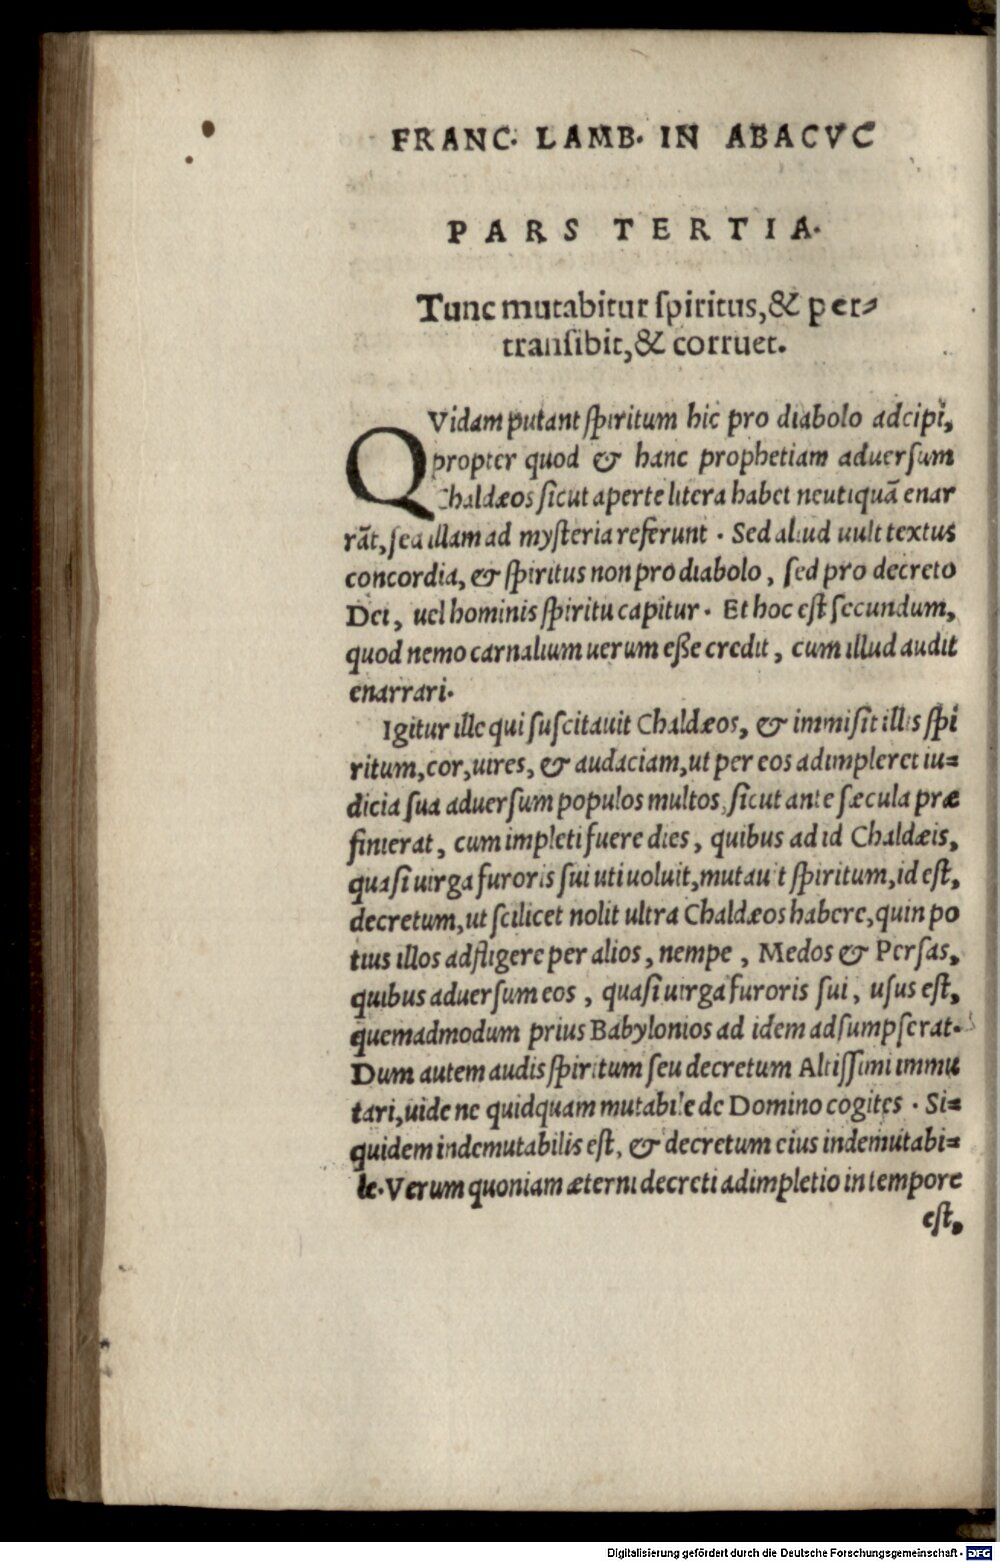 FRANC. LAMB. IN ABACVC
PARS TERTIA.
Tunc mutabitur ſpiritus, & per-
tranſibit, & corruet.
QVidam putant ſpiritum hic pro diabolo adcipi,
propter quod & hanc prophetiam aduerſum
Chaldæos ſicut aperte litera habet neutiquã enar
rãt, ſed illam ad myſteria referunt. Sed aliud uult textus
concordia, & ſpiritus non pro diabolo, ſed pro decreto
Dei, uel hominis ſpiritu capitur. Et hoc eſt ſecundum,
quod nemo carnalium uerum eſſe credit, cum illud audit
enarrari.
Igitur ille qui ſuſcitauit Chaldæos, & immiſit illis ſpi
ritum, cor, uires, & audaciam, ut per eos adimpleret iu=
dicia ſua aduerſum populos multos, ſicut ante ſæcula præ
finierat, cum impleti fuere dies, quibus ad id Chaldæis,
quaſi uirga furoris ſui uti uoluit, mutauit ſpiritum, id eſt,
decretum, ut ſcilicet nolit ultra Chaldæos habere, quin po
tius illos adfligere per alios, nempe, Medos & Perſas,
quibus aduerſum eos, quaſi uirga furoris ſui, uſus eſt,
quemadmodum prius Babylonios ad idem adſumpſerat.
Dum autem audis ſpiritum ſeu decretum Altiſſimi immu
tari, uide ne quidquam mutabile de Domino cogites. Si=
quidem indemutabilis eſt, & decretum eius indemutabi=
le. Verum quoniam æterni decreti adimpletio in tempore
eſt,
Digitalisierung gefördert durch die Deutsche Forschungsgemeinschaft - DFG